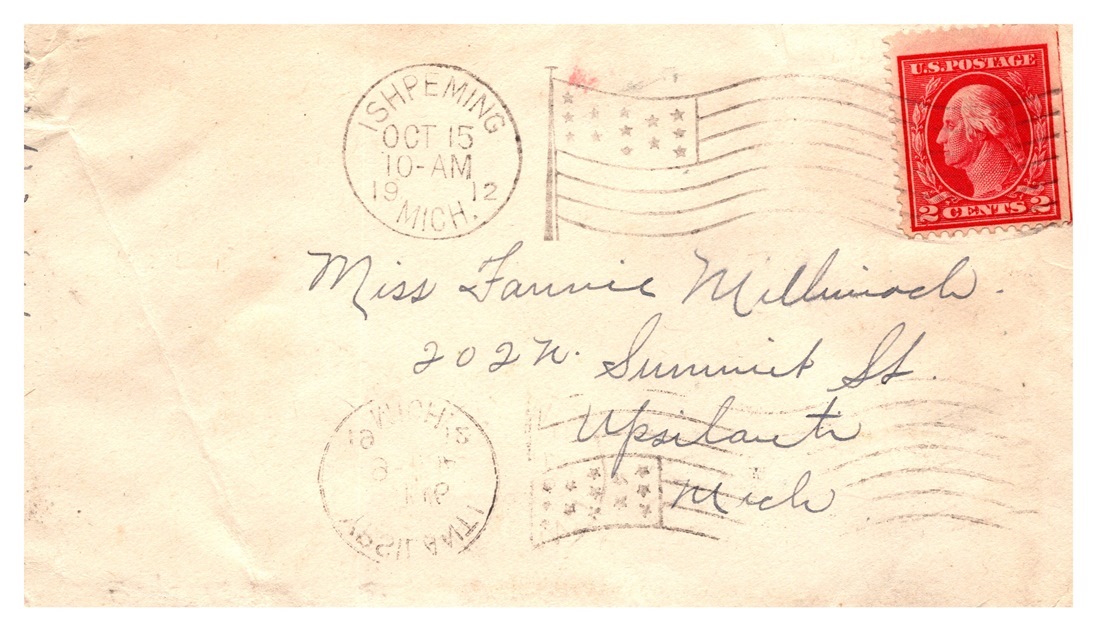 ISHPEMING
OCT 15
10-AM
19 12
MICH.
U.S. POSTAGE
2 CENTS 2
Miss Fannie
202 N. Summit St.
Ypsilanti
Mich
MICH.
19 12
YPSILANTI